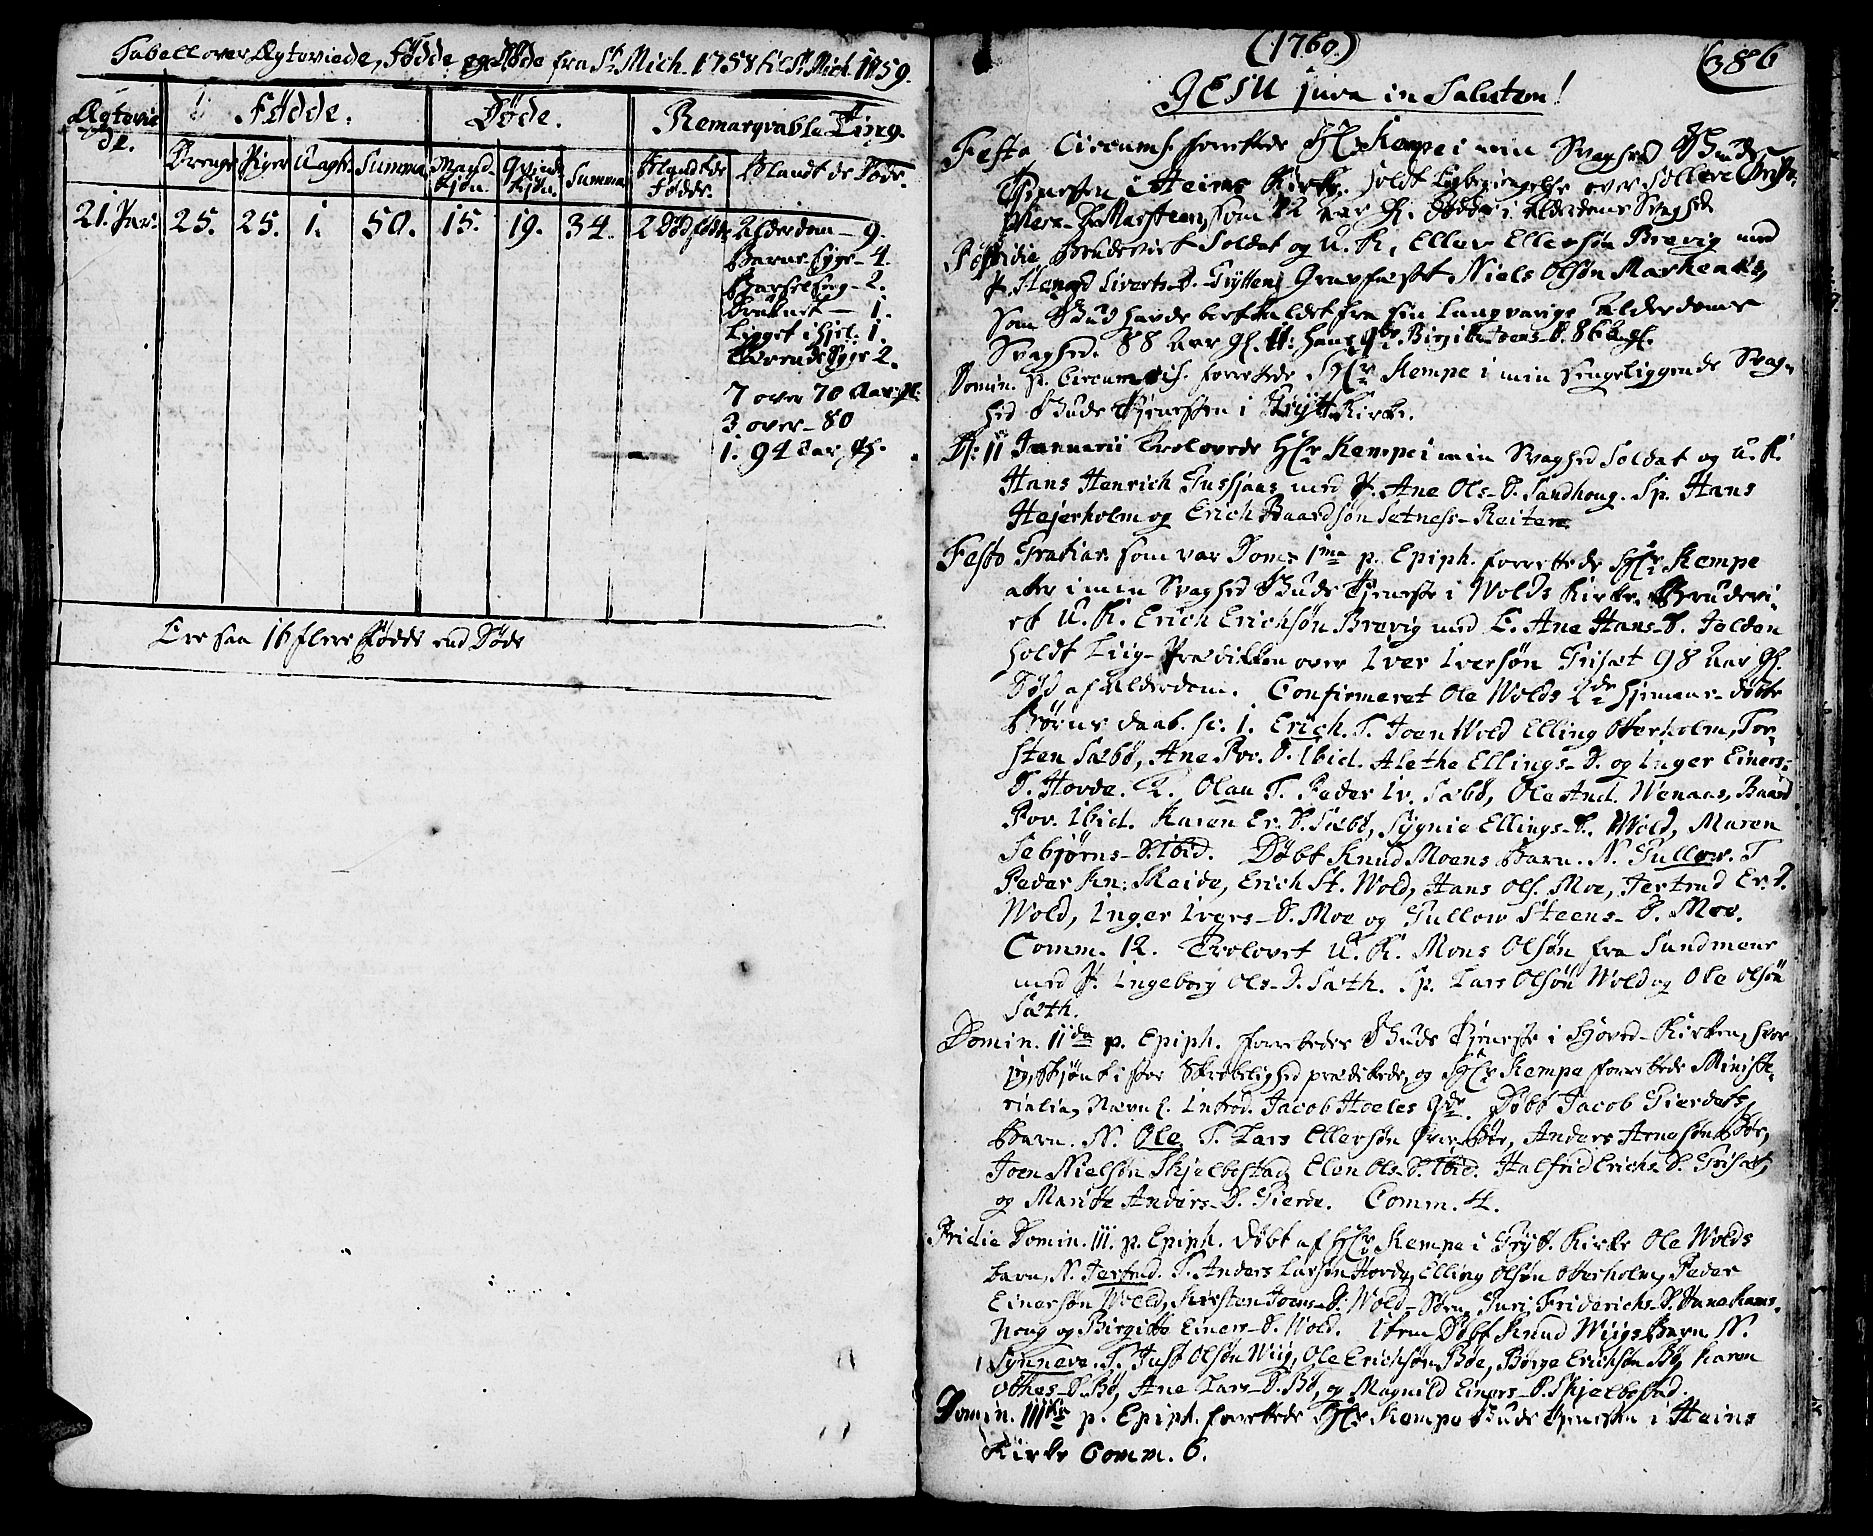 Tabell over Ægteviede, Fødde og Døde fra St. Mich. 1758 til St. Mich. 1759.
Ægtevie
de.
Fødde.
Døde.
Remarqvable Ting.
Drenge
Piger
Uægte
Summa
Mand-
kjøn.
Qvinde
kjøn.
Summa
Blandt de
Fødde.
Blandt de Døde.
21. Par.
25.
25.
1.
50.
15.
19.
34.
2 Dødfødde
Alderdom - 9.
Barne Syge - 4
Barselseng - 2.
Druknet - 1.
Ligget ihjel. 1.
Tærende Syge 2.
7 over 70 Aar gl.
3 over - 80
1. 94 Aar gl.
Ere saa 16 flere Fødde end Døde
(1760.)
386
JESU juva in Salutem!
Festo Circumc. forrettede Hr. Kempe i min Svaghed Guds
Tjenesten i Heims Kirke. holdt Ligbegiængelse over
som 82 Aar gl. døde i Alderdoms Svaghed
Brudeviet Soldat og U. K. Eller Ellersøn Brevig med
P. Siverts-D. Grytten, Gravfæstet Niels Olsøn
som Gud havde bortkaldet fra sin langvarige Alderdoms
Svaghed. 88 Aar gl. It: hans Qde Birgite Joens-D. 86 Aar gl.
Domin. p. Circumcis. forrettede Hr. Kempe i min sengeliggende Svag-
hed Guds Tjenesten i Grytt. Kirke.
D: 11 Januarii Trolovede Hr. Kempe i min Svaghed Soldat og U. K.
Hans Henrich med P. Ane Ols-D. Sandhoug. Sp. Hans
Hejerholm og Erich Baardsøn Setness-Reiten
Festo Gratiar. som var Dom: 1ma p. Epiph. forrettede Hr. Kempe
atter i min Svaghed Guds Tjeneste i Wolds Kirke. Brudevi-
et U. K. Erich Erichsøn Brevig med E. Ane Hans-D.
holdt Liig-Prædiken over Iver Iversøn Griset 98 Aar gl.
Død af Alderdom. Confirmeret Ole Wolds 2de hjemme-døbte
Børns daab. sc. 1. Erich. T. Joen Wold Elling Otterholm, Tor-
sten Sæbø, Ane Pov. D. Ibid. Alethe Ellings-D. og Inger Einers-
D. Hovde. 2. Olau T. Peder Iv. Sæbø, Ole And. Wenaas, Baard
Pov. Ibid. Karen Er. D. Sæbø, Sygnie Ellings-D. Wold, Maren
Tebjørns-D. Ibid. Døbt Knud Moens Barn. N. Gullow. T
Peder Kn: Skeide, Erich St. Wold, Hans Ols. Moe, Jertrud Er. D.
Wold, Inger Ivers-D. Moe og Gullow Steens-D. Moe.
Comm. 12. Trolovet U. K. Mons Olsøn fra Sundmøer
med P. Ingeborg Ols-D. Sæth. Sp. Lars Olsøn Wold og Ole Olsøn
Sæth.
Domin. IIda p. Epiph. forrettedes Guds Tjeneste i Hoved-Kirken, hvor
jeg, skjønt i stor Skrøbelighed prædikede, og Hr. Kempe forrettede Ministe-
rialia, Nævnl. Introd. Jacob Hoeles Qde. Døbt Jacob Gierdets
Barn. N. Ole. T. Lars Ellersøn Anders Arnesøn Bøe,
Joen Nielsøn Skjelbostad, Elen Ols-D. Ibid. Halfrid Erichs-D. Griset
og Maritte Anders-D. Gierde. Comm. 4.
Pridie Domin. III. p. Epiph. døbt af Hr. Kempe i Gryt. Kirke Ole Wolds
barn, N. Jertrud. T. Anders Larsøn Hovde, Elling Olsøn Otterholm, Peder
Einersøn Wold, Kirsten Joens-D. Wold-Søren, Guri Friderichs-D.
houg og Birgitte Einers-D. Wold. Item Døbt Knud Wiigs Barn N.
Synneve. T. Just Olsøn Wiig, Ole Erichsøn Bøe, Børge Erichsøn Bø, Karen
Bø, Ane Lars-D. Bø, og Magnild Einers-D. Skjelbostad.
Domin. IIItia p. Epiph. forrettede Hr. Kempe Guds Tjenesten i Heims
Kirke Comm. 6.